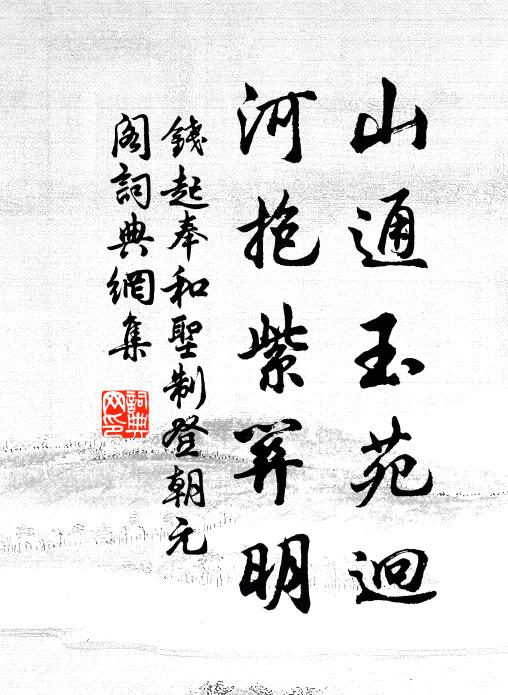 山通玉苑迥
河抱紫關明
錢起奉和聖制登朝元
閣詞典網集
詞典
网印